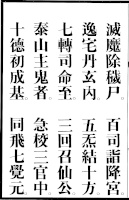 滅魔除穢尸　百司詣降宮
逸宅丹玄內　五炁結十方
七轉司命至　三回召仙公
泰山主鬼者　急校三官中
十德初成基　同飛七覺元